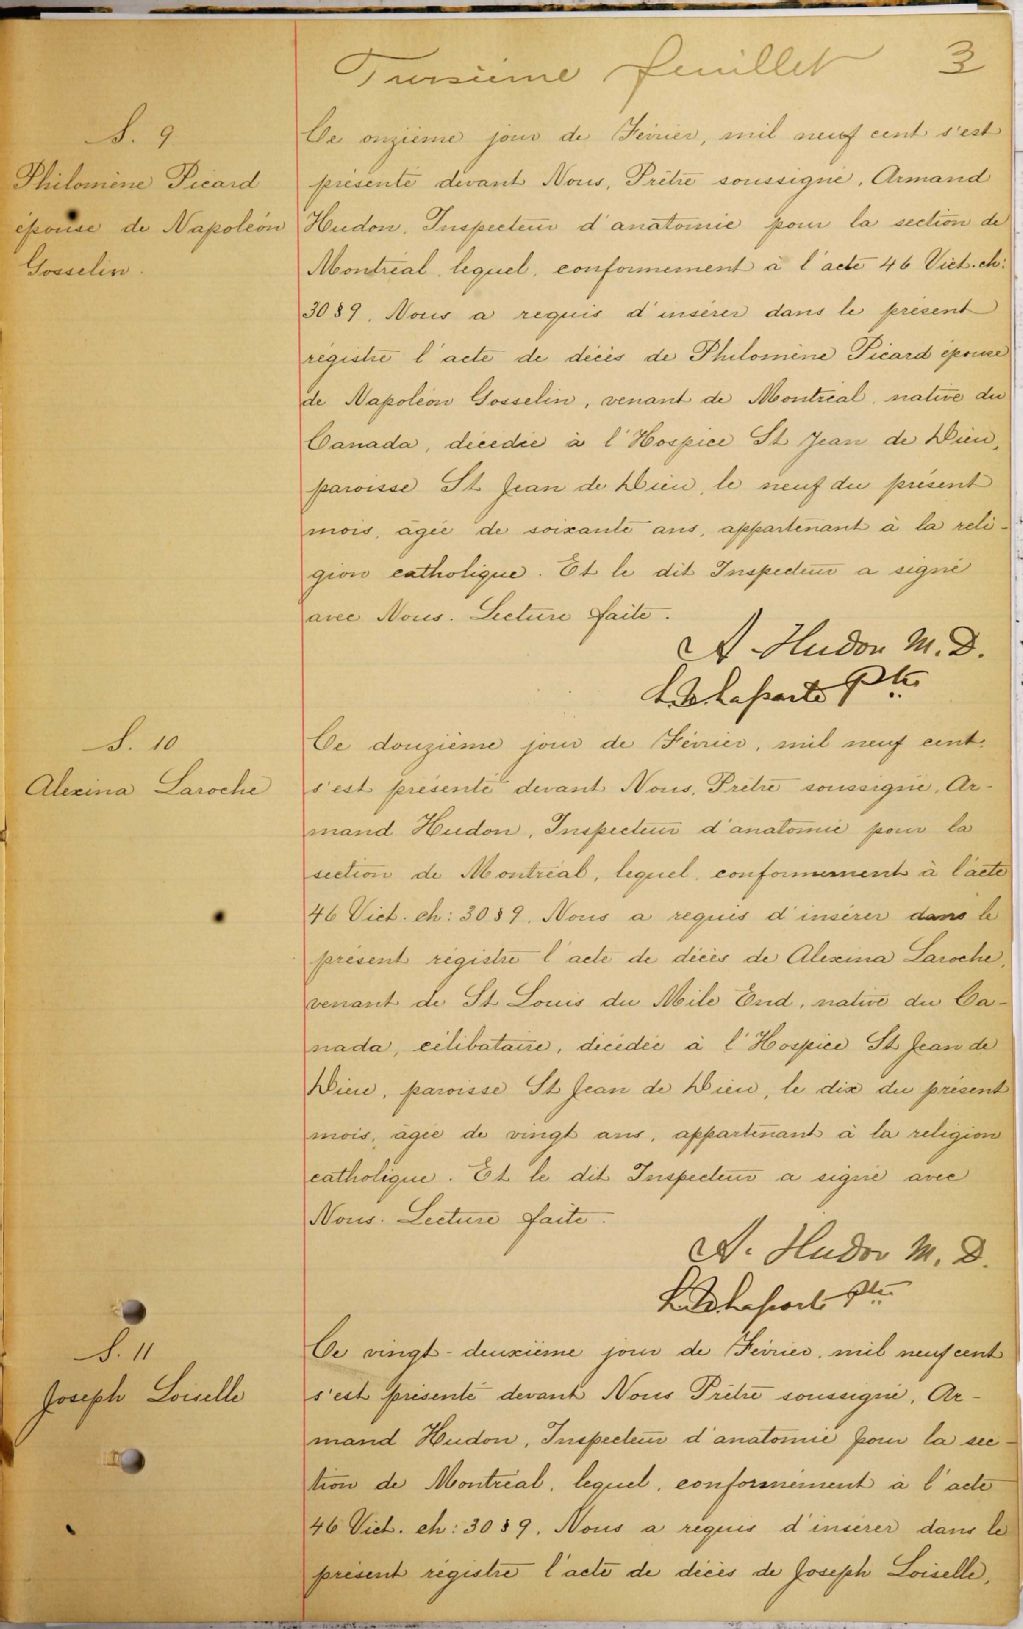 Troisième feuillet 3
S. 9
Philomène Picard
épouse de Napoléon
Gosselin.
Ce onzième jour de Février, mil neuf cent s'est
présenté devant Nous, Prêtre soussigné, Armand
Hudon, Inspecteur d'anatomie pour la section de
Montréal, lequel, conformement à l'acte 46 Vict. ch:
30 § 9. Nous a requis d'insérer dans le présent
régistre l'acte de décès de Philomène Picard épouse
de Napoléon Gosselin, venant de Montréal, native du
Canada, décédée à l'Hospice St Jean de Dieu,
paroisse St Jean de Dieu, le neuf du présent
mois, âgée de soixante ans, appartenant à la reli-
gion catholique. Et le dit Inspecteur a signé
avec Nous. Lecture faite.
A. Hudon M. D.
Laporte Ptre
S. 10
Alexina Laroche
Ce douzième jour de Février, mil neuf cent,
s'est présenté devant Nous, Prêtre soussigné, Ar-
mand Hudon, Inspecteur d'anatomie pour la
section de Montréal, lequel, conformement à l'acte
46 Vict. ch: 30 § 9. Nous a requis d'insérer dans le
présent régistre l'acte de décès de Alexina Laroche,
venant de St Louis du Mile End, native du Ca-
nada, célibataire, décédée à l'Hospice St Jean de
Dieu, paroisse St Jean de Dieu, le dix du présent
mois, âgée de vingt ans, appartenant à la religion
catholique. Et le dit Inspecteur a signé avec
Nous. Lecture faite.
A. Hudon M. D.
Laporte Ptre
S. 11
Joseph Loiselle
Ce vingt-deuxième jour de Février, mil neuf cent
s'est présenté devant Nous Prêtre soussigné, Ar-
mand Hudon, Inspecteur d'anatomie pour la sec-
tion de Montréal, lequel, conformément à l'acte
46 Vict. ch: 30 § 9. Nous a requis d'insérer dans le
présent régistre l'acte de décès de Joseph Loiselle,